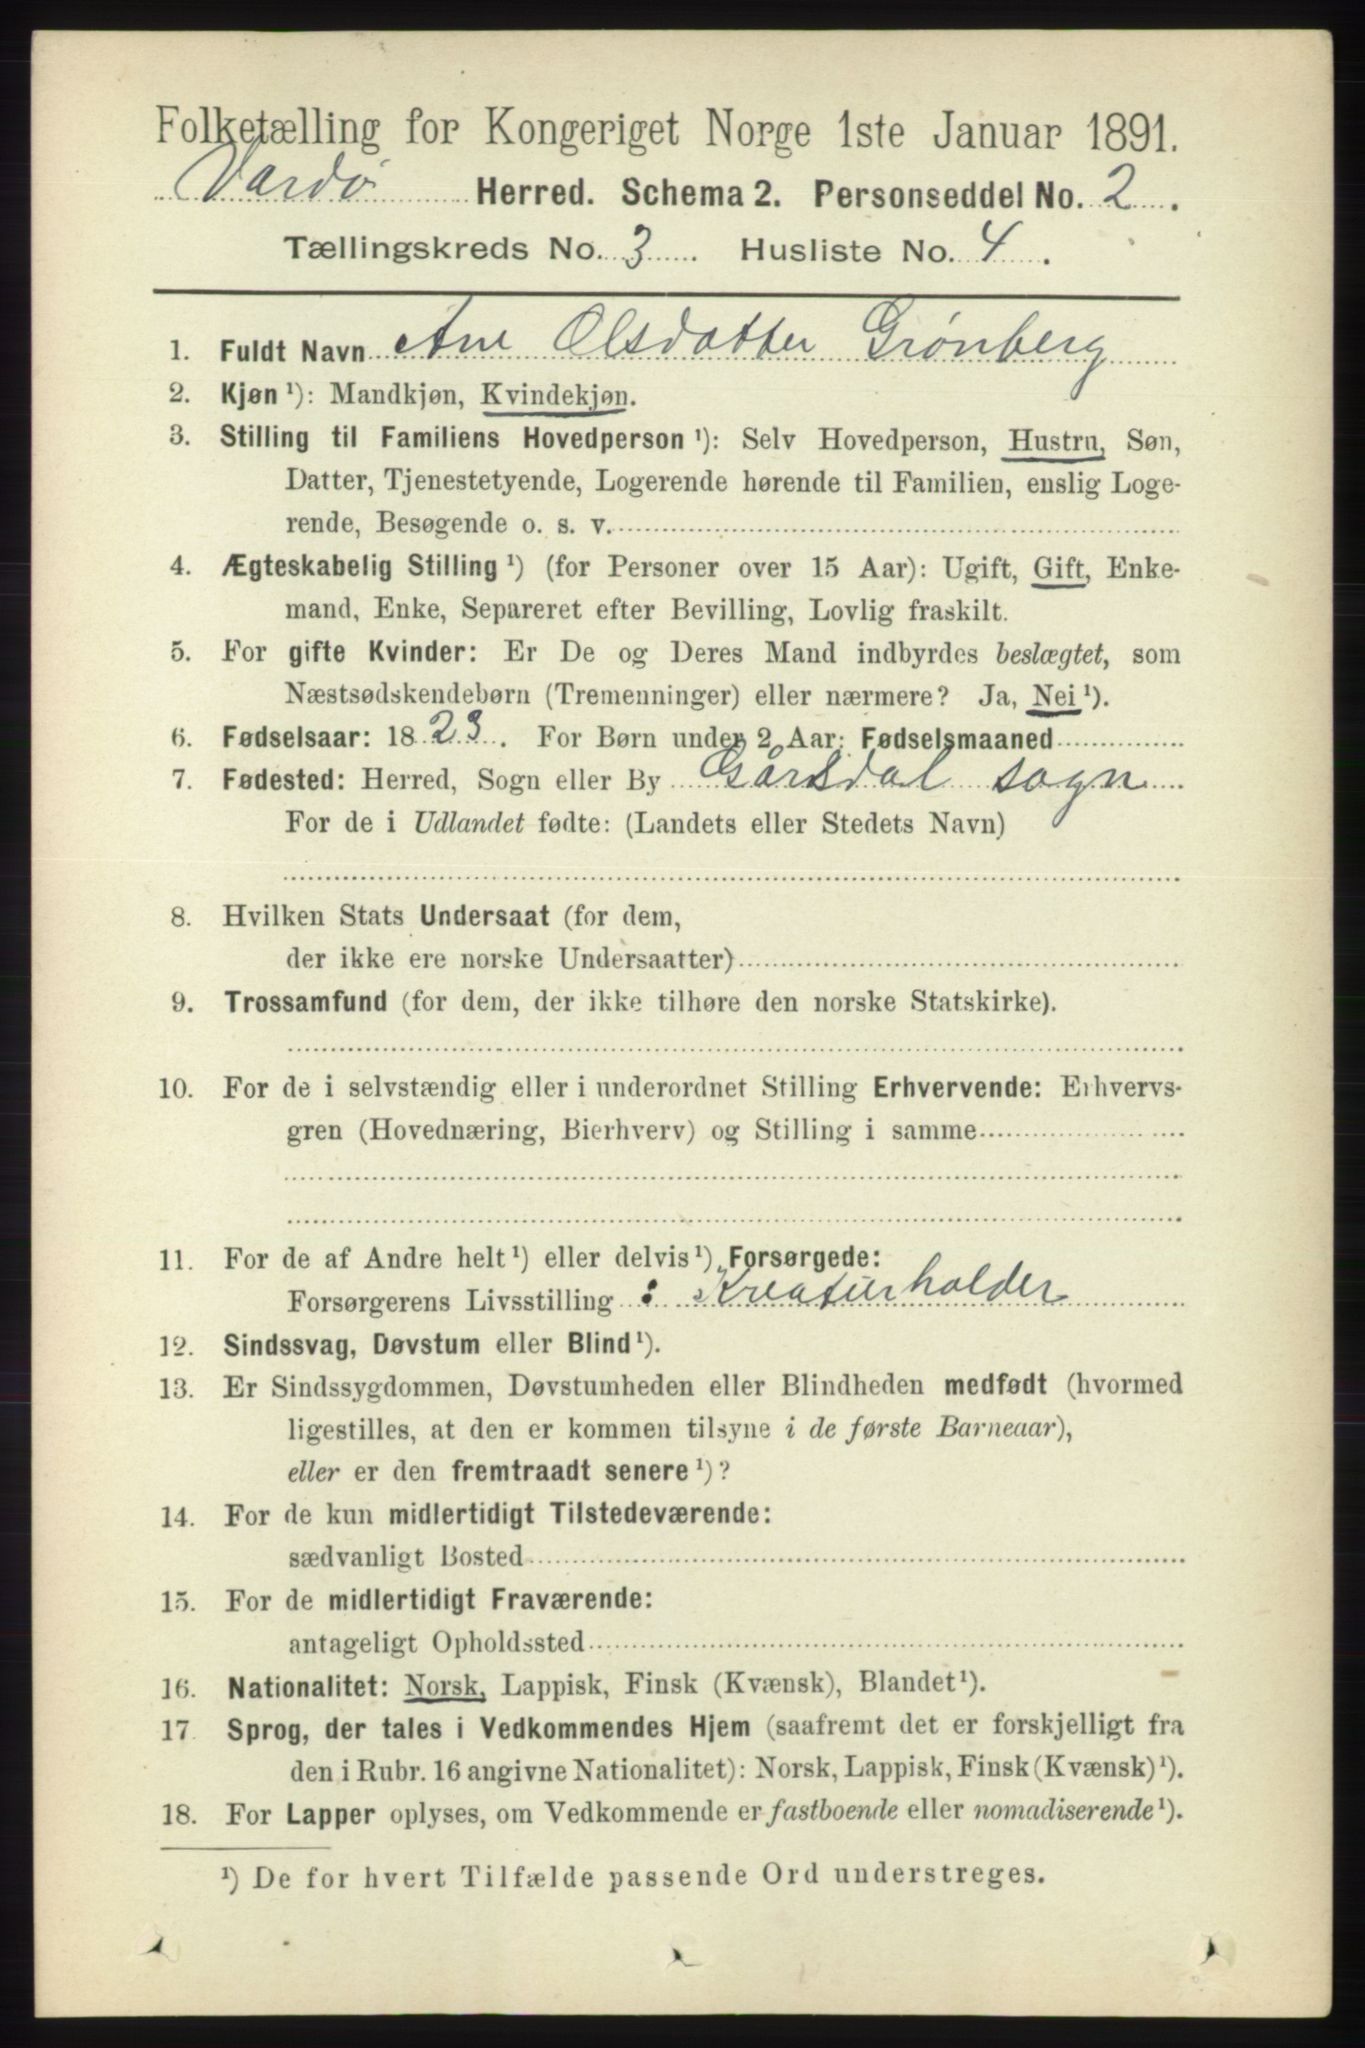 Folketælling for Kongeriget Norge 1ste Januar 1891.
Vardø Herred. Schema 2. Personseddel No. 2.
Tællingskreds No. 3. Husliste No. 4.
1. Fuldt Navn Ane Olsdatter Grønberg
2. Kjøn ¹): Mandkjøn, Kvindekjøn.
3. Stilling til Familiens Hovedperson ¹): Selv Hovedperson, Hustru, Søn,
Datter, Tjenestetyende, Logerende hørende til Familien, enslig Loge-
rende, Besøgende o. s. v.
4. Ægteskabelig Stilling ¹) (for Personer over 15 Aar): Ugift, Gift, Enke-
mand, Enke, Separeret efter Bevilling, Lovlig fraskilt.
5. For gifte Kvinder: Er De og Deres Mand indbyrdes beslægtet, som
Næstsødskendebørn (Tremenninger) eller nærmere? Ja, Nei ¹).
6. Fødselsaar: 1823. For Børn under 2 Aar: Fødselsmaaned
7. Fødested: Herred, Sogn eller By Gårsdal sogn
For de i Udlandet fødte: (Landets eller Stedets Navn)
8. Hvilken Stats Undersaat (for dem,
der ikke ere norske Undersaatter)
9. Trossamfund (for dem, der ikke tilhøre den norske Statskirke).
10. For de i selvstændig eller i underordnet Stilling Erhvervende: Erhvervs-
gren (Hovednæring, Bierhverv) og Stilling i samme
11. For de af Andre helt ¹) eller delvis ¹) Forsørgede:
Forsørgerens Livsstilling : Kreaturholder
12. Sindssvag, Døvstum eller Blind ¹).
13. Er Sindssygdommen, Døvstumheden eller Blindheden medfødt (hvormed
ligestilles, at den er kommen tilsyne i de første Barneaar),
eller er den fremtraadt senere ¹)?
14. For de kun midlertidigt Tilstedeværende:
sædvanligt Bosted
15. For de midlertidigt Fraværende:
antageligt Opholdssted
16. Nationalitet: Norsk, Lappisk, Finsk (Kvænsk), Blandet ¹).
17. Sprog, der tales i Vedkommendes Hjem (saafremt det er forskjelligt fra
den i Rubr. 16 angivne Nationalitet): Norsk, Lappisk, Finsk (Kvænsk) ¹).
18. For Lapper oplyses, om Vedkommende er fastboende eller nomadiserende ¹).
¹) De for hvert Tilfælde passende Ord understreges.